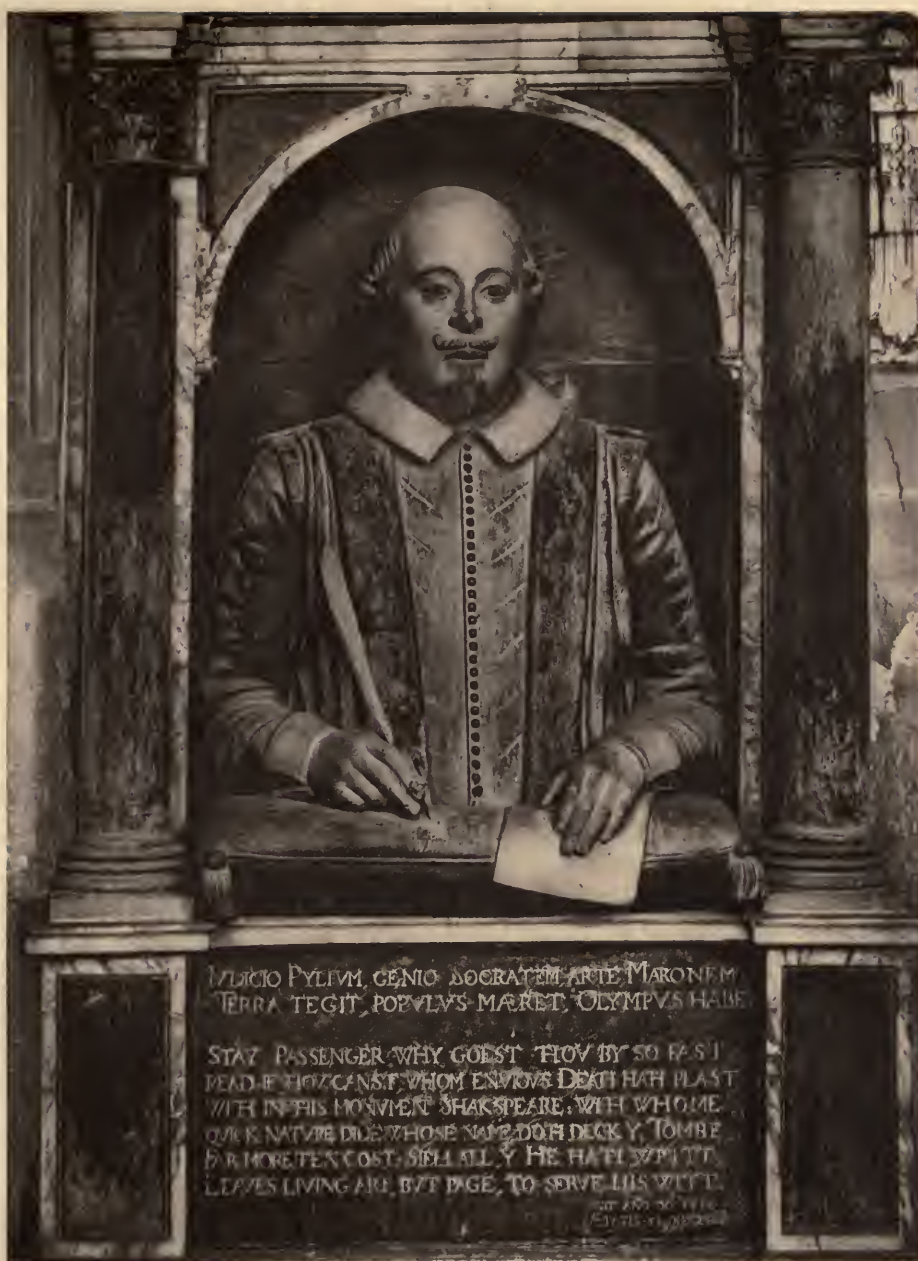 IVDICIO PYLIVM, GENIO SOCRATEM, ARTE MARONEM,
TERRA TEGIT, POPVLVS MÆRET, OLYMPVS HABE
STAY PASSENGER, WHY GOEST THOV BY SO FAST
READ IF THOV CANST, WHOM ENVIOVS DEATH HATH PLAST
WITH IN THIS MONVMENT SHAKSPEARE: WITH WHOME
QVICK NATVRE DIDE WHOSE NAME, DOTH DECK Y TOMBE
FAR MORE TEN COST: SIEH ALL, Y HE HATH WRITT
LEAVES LIVING ART, BVT PAGE, TO SERVE HIS WITT.